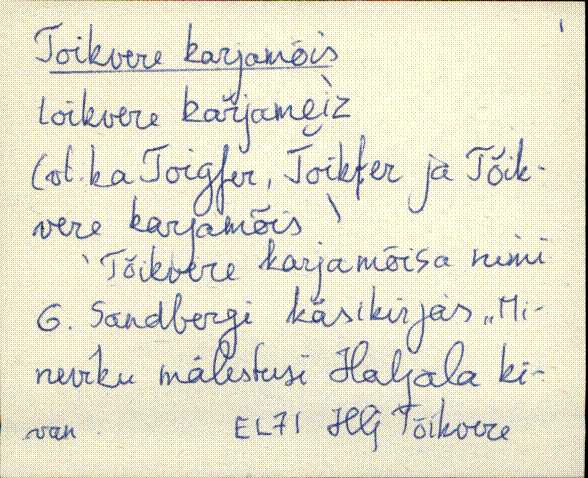 Toikvere karjamõis
toikvere kaŕjamɐ̀iz
(vt. ka Toigfer, Toikfer ja Tõik-
vere karjamõis)
Tõikvere karjamõisa nimi
G. Sandbergi käsikirjas „Mi-
neviku mälestusi Haljala ki-
van EL71 HlG Tõikvere